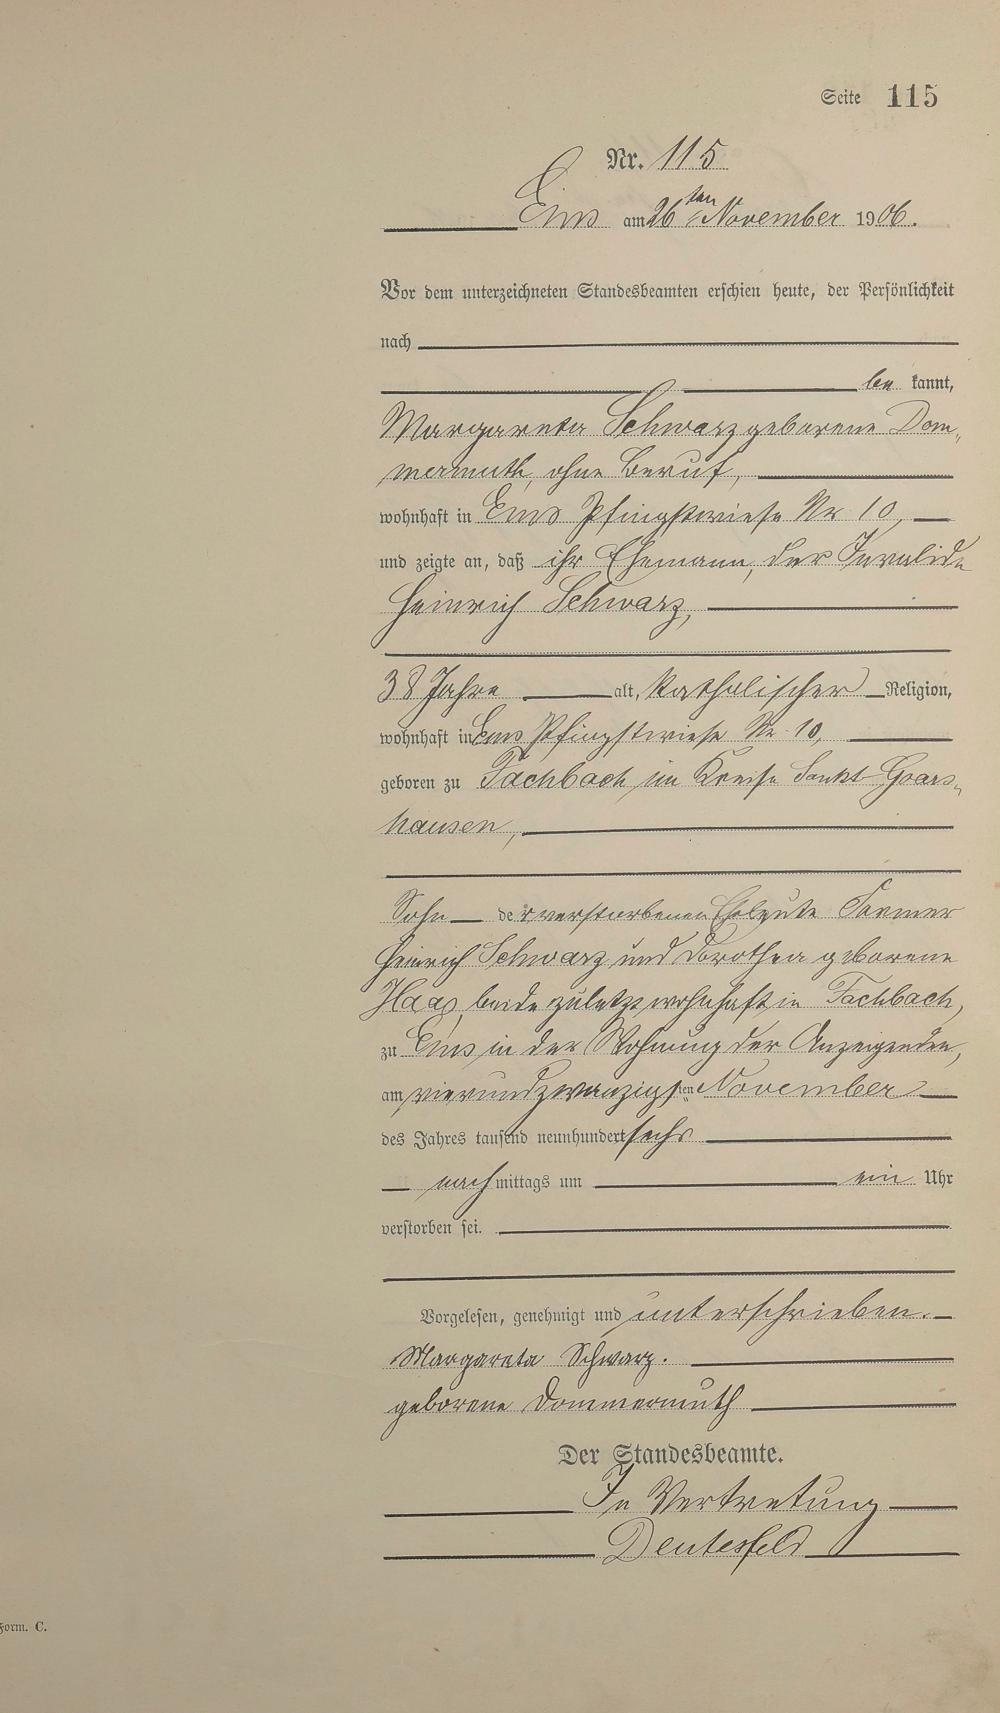 Seite 115
Nr. 115
Ems am 26ten November 1906.
Vor dem unterzeichneten Standesbeamten erschien heute, der Persönlichkeit
nach
be kannt,
Margareta Schwarz geborene Dom-
mermuth, ohne Beruf,
wohnhaft in Ems Pfingstwiese Nr 10,
und zeigte an, daß ihr Ehemann, der Invalide
Heinrich Schwarz,
38 Jahre alt, katholischer Religion,
wohnhaft in Ems Pfingstwiese Nr 10,
geboren zu Fachbach im Kreise Sankt Goars-
hausen,
Sohn der verstorbenen Eheleute
Heinrich Schwarz und Dorothea geborene
Haas, beide zuletzt wohnhaft in Fachbach,
zu Ems in der Wohnung der Anzeigenden,
am vierundzwanzigsten November
des Jahres tausend neunhundert sechs
nach mittags um ein Uhr
verstorben sei.
Vorgelesen, genehmigt und unterschrieben.
Margareta Schwarz.
geborene Dommermuth
Der Standesbeamte.
In Vertretung
Form. C.